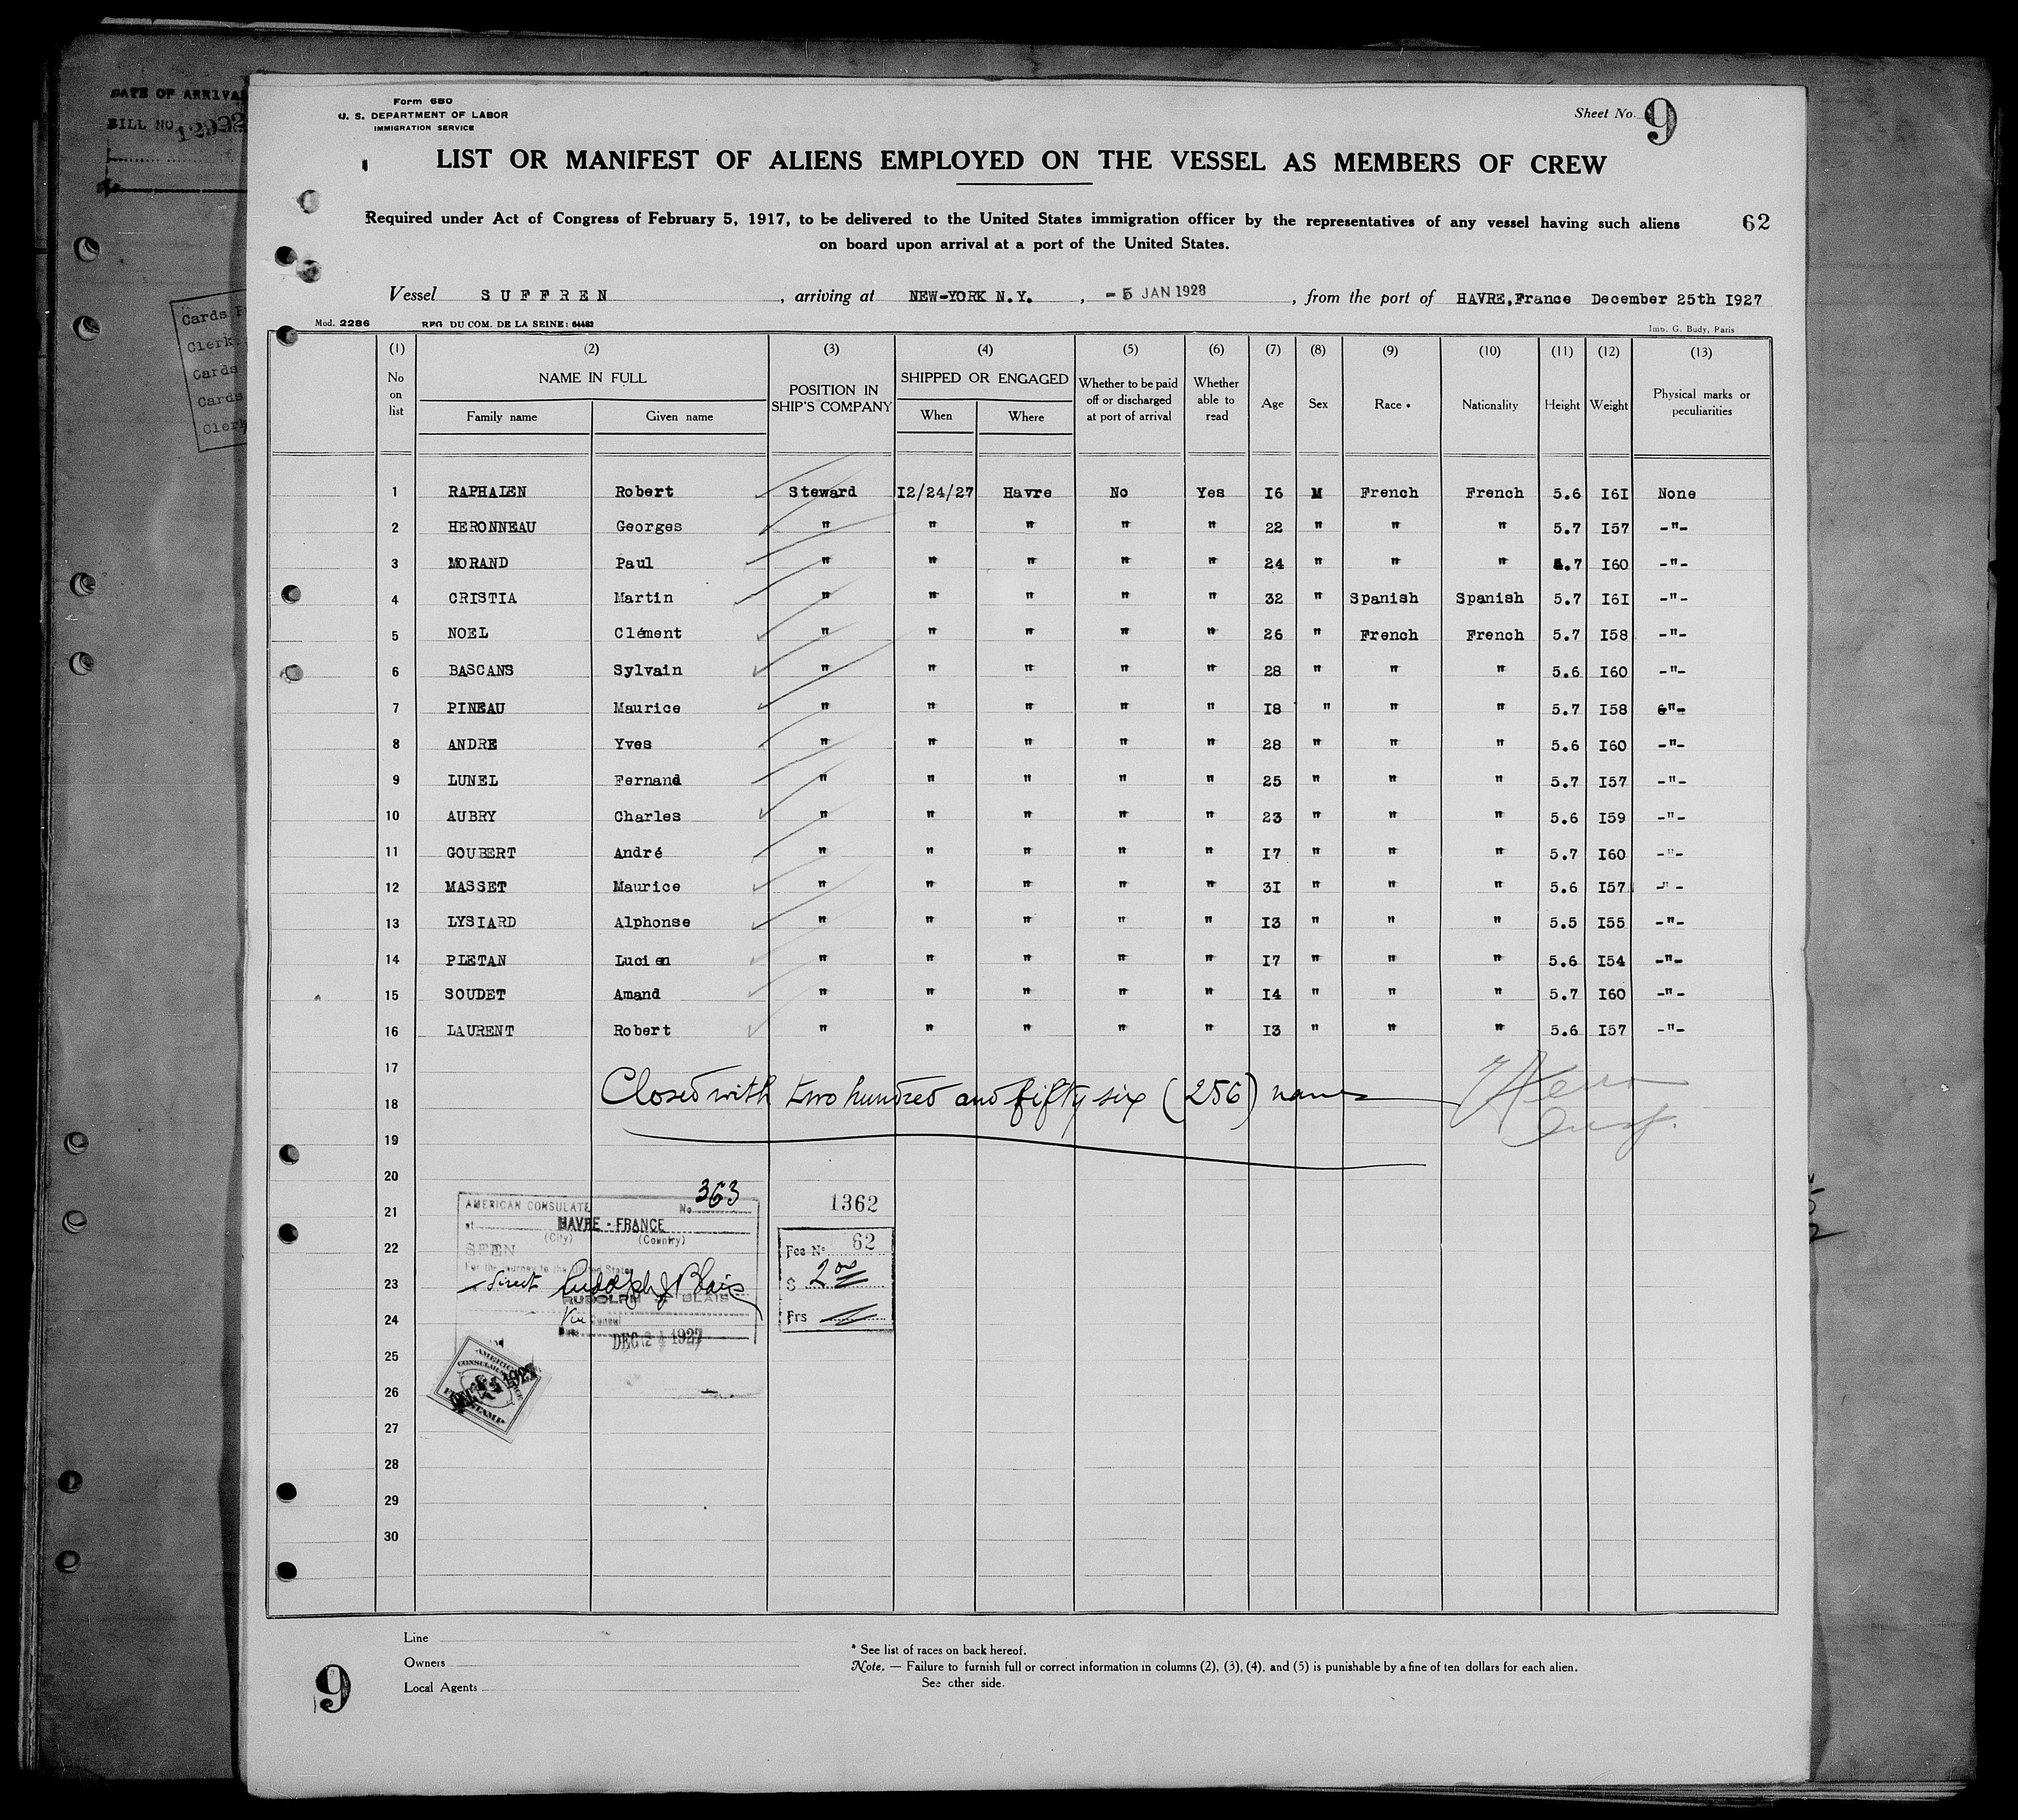 DATE OF ARRIVAL
BILL NO. 12992
Cards
Clerk
Cards
Cards
Clerk
Form 680
U. S. DEPARTMENT OF LABOR
IMMIGRATION SERVICE
Sheet No. 9
LIST OR MANIFEST OF ALIENS EMPLOYED ON THE VESSEL AS MEMBERS OF CREW
Required under Act of Congress of February 5, 1917, to be delivered to the United States immigration officer by the representatives of any vessel having such aliens
on board upon arrival at a port of the United States.
62
Vessel SUFFREN, arriving at NEW-YORK N.Y., - 5 JAN 1928, from the port of HAVRE, France December 25th 1927
Mod. 2286 REG DU COM. DE LA SEINE: 64483 Imp. G. Budy, Paris
(1) (2) (3) (4) (5) (6) (7) (8) (9) (10) (11) (12) (13)
No on list NAME IN FULL Family name Given name POSITION IN SHIP'S COMPANY SHIPPED OR ENGAGED When Where Whether to be paid off or discharged at port of arrival Whether able to read Age Sex Race * Nationality Height Weight Physical marks or peculiarities
1 RAPHALEN Robert Steward I2/24/27 Havre No Yes I6 M French French 5.6 I6I None
2 HERONNEAU Georges " " " " " 22 " " " 5.7 I57 -"-
3 MORAND Paul " " " " " 24 " " " 5.7 I60 -"-
4 CRISTIA Martin " " " " " 32 " Spanish Spanish 5.7 I6I -"-
5 NOEL Clément " " " " " 26 " French French 5.7 I58 -"-
6 BASCANS Sylvain " " " " " 28 " " " 5.6 I60 -"-
7 PINEAU Maurice " " " " " I8 " " " 5.7 I58 -"-
8 ANDRE Yves " " " " " 28 " " " 5.6 I60 -"-
9 LUNEL Fernand " " " " " 25 " " " 5.7 I57 -"-
10 AUBRY Charles " " " " " 23 " " " 5.6 I59 -"-
11 GOUBERT André " " " " " I7 " " " 5.7 I60 -"-
12 MASSET Maurice " " " " " 3I " " " 5.6 I57 -"-
13 LYSIARD Alphonse " " " " " I3 " " " 5.5 I55 -"-
14 PLETAN Lucien " " " " " I7 " " " 5.6 I54 -"-
15 SOUDET Amand " " " " " I4 " " " 5.7 I60 -"-
16 LAURENT Robert " " " " " I3 " " " 5.6 I57 -"-
17
18 Closed with two hundred and fifty six (256) names
19
20
21
22
23
24
25
26
27
28
29
30
AMERICAN CONSULATE No. 363
at HAVRE - FRANCE
(City) (Country)
SEEN
For the journey to the United States
direct Rudolph J Blais
RUDOLPH J BLAIS
Vice Consul
Date DEC 24 1927
1362
Fee No. 62
$ 2 00
Frs
AMERICAN
CONSULAR SERVICE
FEE STAMP
Line
Owners
Local Agents
* See list of races on back hereof.
Note. — Failure to furnish full or correct information in columns (2), (3), (4), and (5) is punishable by a fine of ten dollars for each alien.
See other side.
9